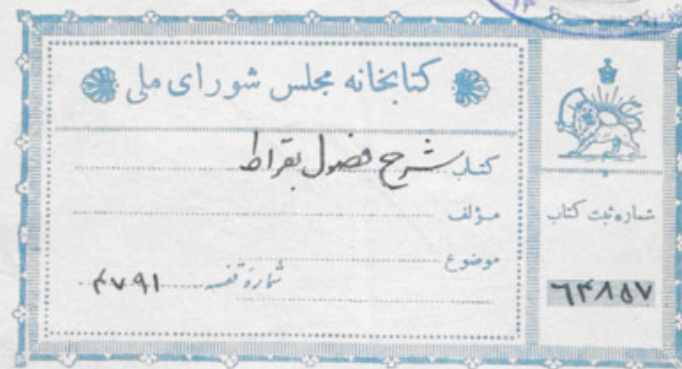 کتابخانه مجلس شورای ملی
کتاب شرح فصول بقراط
مؤلف
موضوع
شماره قفسه ۴۷۹۱
شماره ثبت کتاب
۶۴۸۵۷
۱۳